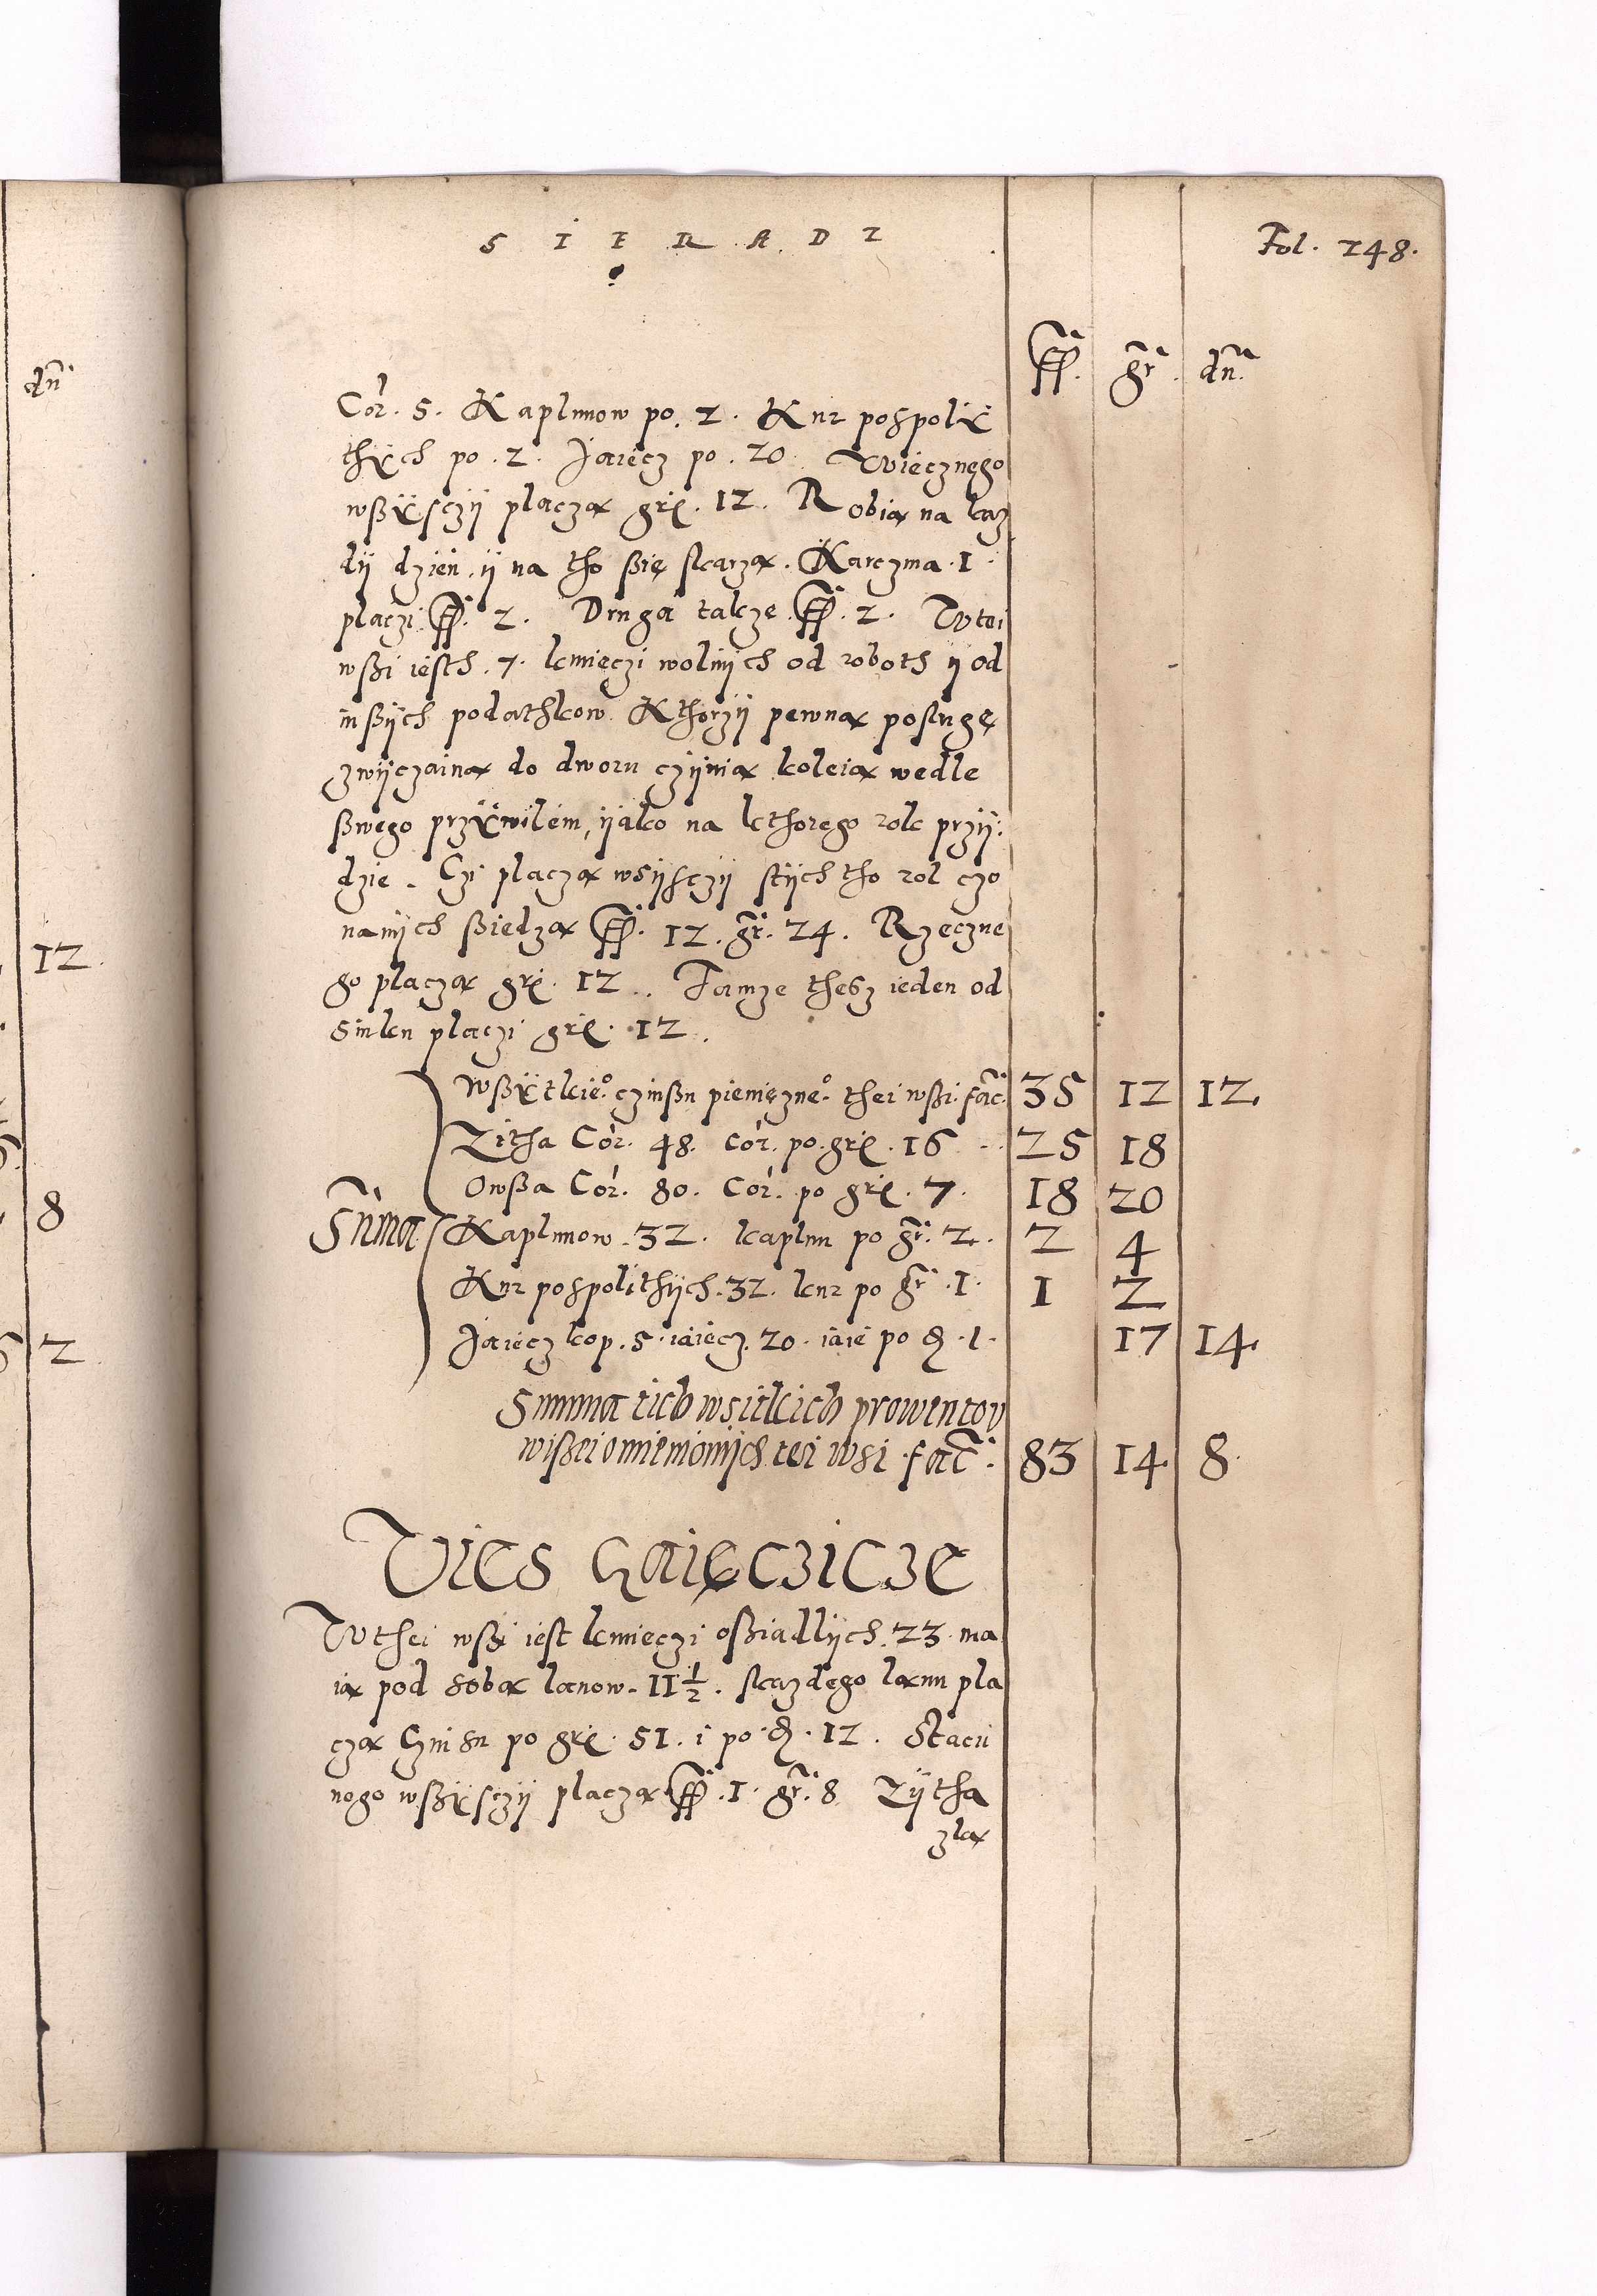 SIERADZ
Fol. 248.
ff. gr. dn.
dn.
Cor. 5. Kaplunow po. 2. Kur pospoli
thych po. 2. Jaiecz po. 20. Wiecznego
wßysczÿ placzą grſ. 12. Robią na kaz
dÿ dzien, ÿ na tho ßię skarzą. Karczma. 1.
placzi ff. 2. Druga takze ff. 2. W tei
wßi iesth. 7. kmieczi wolnÿch od roboth ÿ od
inßÿch podathkow. Kthorzÿ pewną posługę
zwÿczainą do dworu czÿnią koleią wedle
ßwego przÿwilem, ÿako na kthorego rolę przÿ:
dzie. Czi placzą wsÿsczÿ stÿch tho rol czo
nanÿch ßiedzą ff. 12. gr. 24. Rzeczne
go placzą grſ. 12. Tamze thesz ieden od
sinku placzi grſ. 12.
Wßÿtkieo. czinßu pienięzneo. thei wßi. fac. 35 12 12.
Zitha Cor. 48. cor. po. grſ. 16 25 18
Owßa Cor. 80. Cor. po grſ. 7. 18 20
Suma Kaplunow. 32. kaplun po gr. 2. 2 4
Kur pospolithÿch. 32. kur po gr. 1. 1 2
Jaiecz kop. 5. iaiecz. 20. iaie po d. 1. 17 14.
Summa tich wsitkich prowentow
wißei omiemonÿch tei wsi fac. 83 14 8.
Wies Gaięczicze
W thei wßi iest kmieczi oßiadlÿch. 23. ma
ią pod sobą lanow. 11 1/2. skazdego lanu pla
czą Czinsu po grſ. 51. i po d. 12. Stacii
nogo wßÿsczÿ placzą ff. 1. gr. 8 Zÿtha
zla
12.
8
2